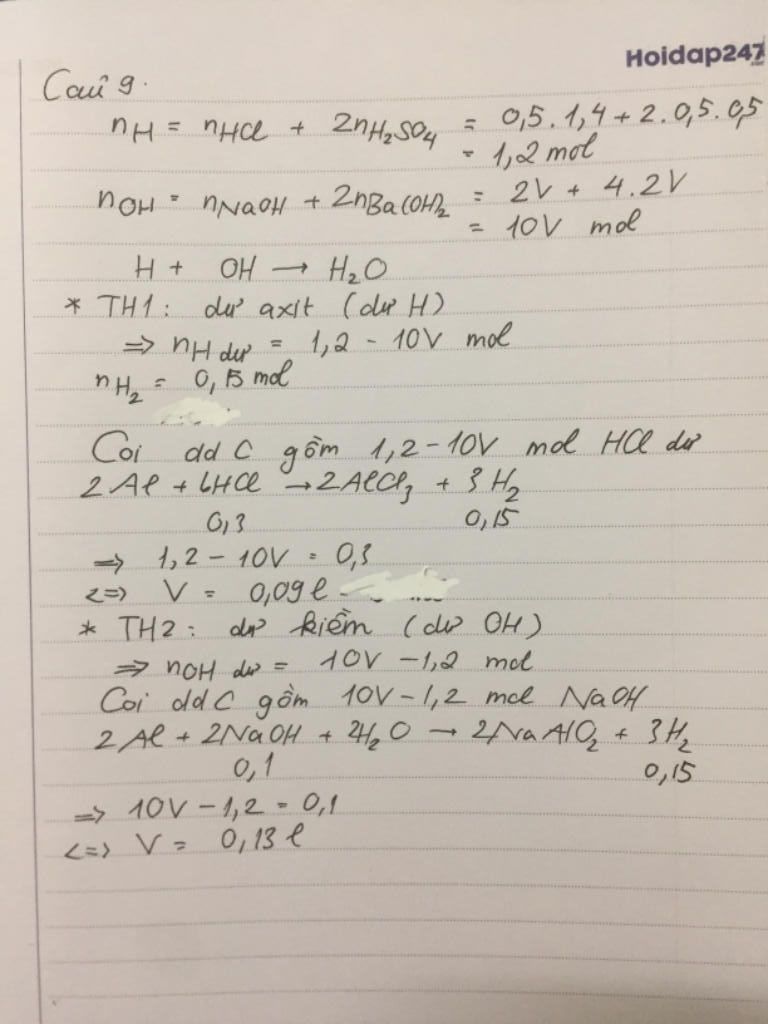 Hoidap247
Câu 9.
nH = nHCl + 2nH₂SO₄ = 0,5.1,4 + 2.0,5.0,5
= 1,2 mol
nOH = nNaOH + 2nBa(OH)₂ = 2V + 4.2V
= 10V mol
H + OH → H₂O
* TH1: dư axit (dư H)
=> nH dư = 1,2 - 10V mol
nH₂ = 0,15 mol
Coi dd C gồm 1,2 - 10V mol HCl dư
2Al + 6HCl → 2AlCl₃ + 3H₂
0,3 0,15
=> 1,2 - 10V = 0,3
<=> V = 0,09 l
* TH2: dư kiềm (dư OH)
=> nOH dư = 10V - 1,2 mol
Coi dd C gồm 10V - 1,2 mol NaOH
2Al + 2NaOH + 2H₂O → 2NaAlO₂ + 3H₂
0,1 0,15
=> 10V - 1,2 = 0,1
<=> V = 0,13 l